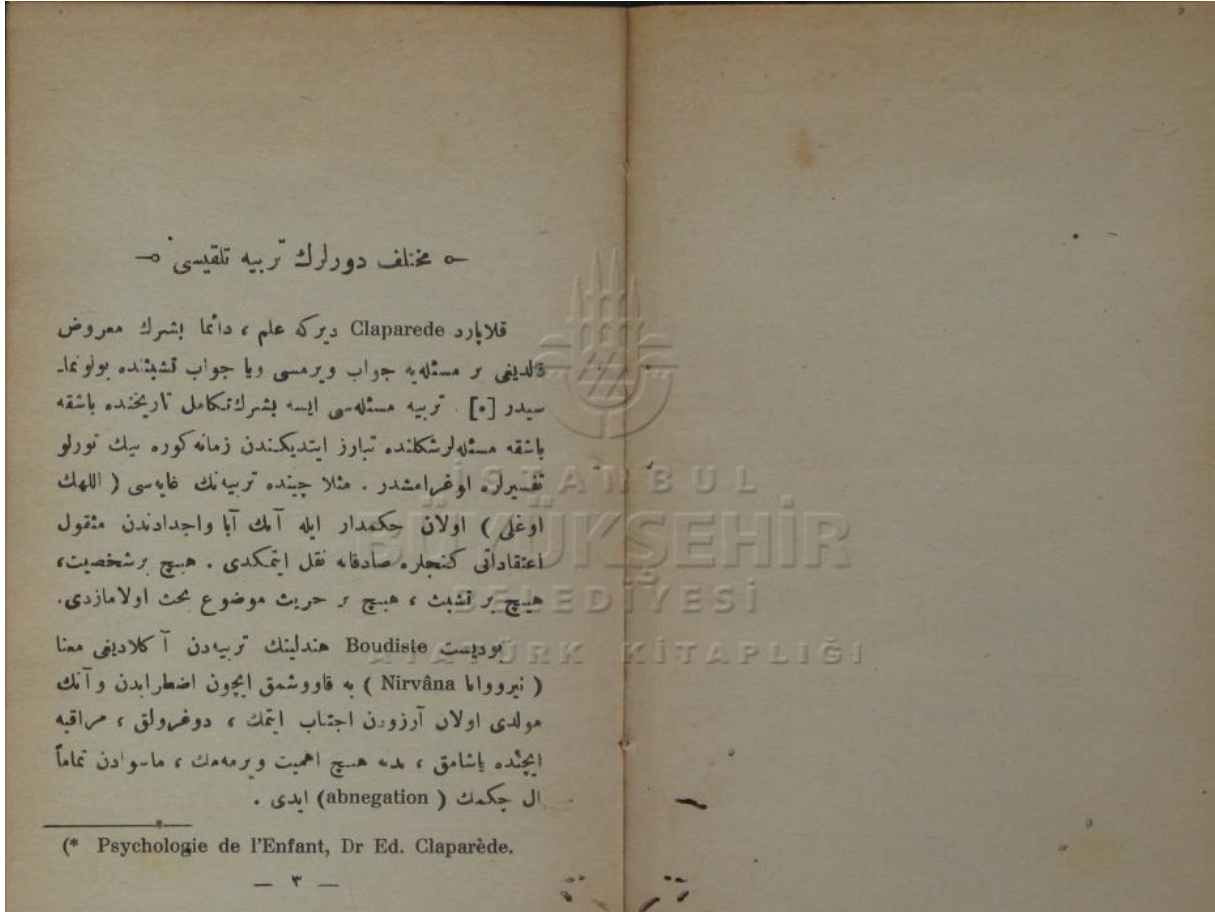 مختلف دورلرك تربیه تلقیسی
قلاپارد Claparede دیركه علم ، دائما بشرك معروض
قالدیغی بر مسئله‌یه جواب ویرمسی ویا جواب تشبثنده بولونما-
سیدر [*] . تربیه مسئله‌سی ایسه بشرك تكامل تاریخنده باشقه
باشقه مسئله‌لر شكلنده تبارز ایتدیكندن زمانه كوره بیك تورلو
تفسیرلره اوغرامشدر . مثلا چینده تربیه‌نك غایه‌سی ( اللهك
اوغلی ) اولان حكمدار ایله آنك آبا واجدادندن منقول
اعتقاداتی كنجلره صادقانه نقل ایتمكدی . هیچ بر شخصیت،
هیچ بر تشبث ، هیچ بر حریت موضوع بحث اولامازدی.
بودیست Boudiste هندلینك تربیه‌دن آكلادیغی معنا
( نیروانا Nirvâna ) یه قاووشمق ایچون اضطرابدن وآنك
مولدی اولان آرزودن اجتناب ایتمك ، دوغرولق ، مراقبه
ایچنده یاشامق ، بدنه هیچ اهمیت ویرمه‌مك ، ماسوادن تماماً
ال چكمك ( abnegation ) ایدی .
(* Psychologie de l'Enfant, Dr Ed. Claparède.
— ٣ —
İSTANBUL
BÜYÜKŞEHİR
BELEDİYESİ
ATATÜRK KİTAPLIĞI